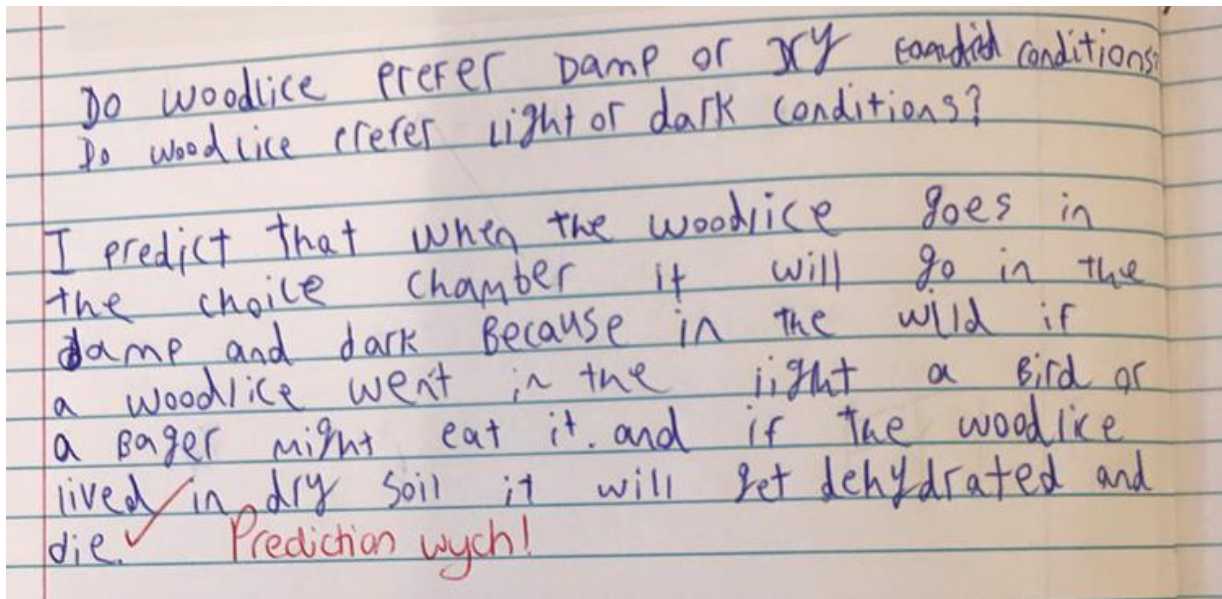 Do woodlice prefer Damp or Dry conditions?
Do woodlice prefer Light or dark conditions?
I predict that when the woodlice goes in
the choice chamber it will go in the
damp and dark Because in the wild if
a woodlice went in the light a Bird or
a Bager might eat it. and if the woodlice
lived in dry soil it will get dehydrated and
die. Prediction wych!